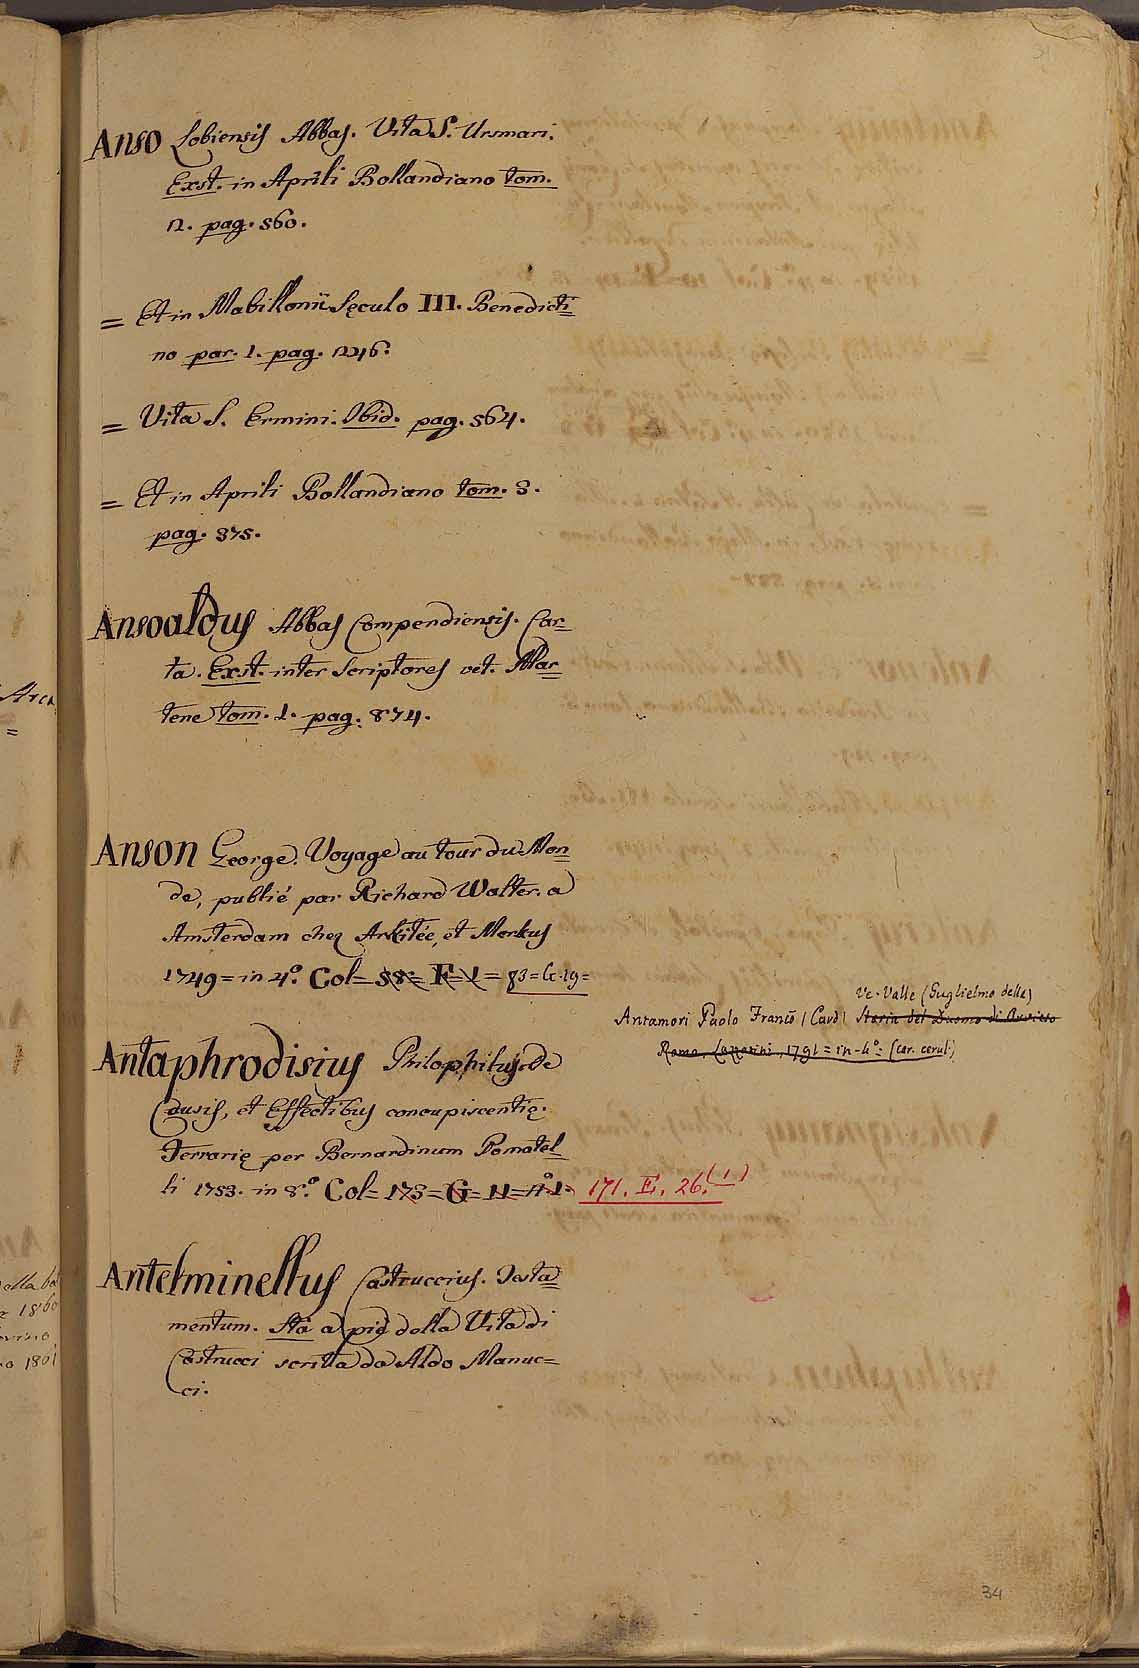 Anso Lobiensis Abbas. Vita S. Ursmari.
Exst. in Aprili Bollandiano tom.
2. pag. 560.
= Et in Mabillonii Sęculo III. Benedicti=
no par. 1. pag. 246.
= Vita S. Ermini. Ibid. pag. 564.
= Et in Aprili Bollandiano tom. 3.
pag. 375.
Ansoaldus Abbas Compendiensis. Car=
ta. Exst. inter Scriptores vet. Mar=
tene tom. 1. pag. 874.
Anson George. Voyage au tour du Mon=
de, publié par Richard Walter. a
Amsterdam chez Arkitée, et Merkus
1749 = in 4.º Col= 58= F= 1 = 83=G.19=
Ve. Valle (Guglielmo della)
Antamori Paolo Franc̄o (Card) Storia del Duomo di Orvieto
Roma, Lazzarini, 1791 = in-4º= (car. cerul:)
Antaphrodisius Philophilus de
Causis, et Effectibus concupiscentię.
Ferrarię per Bernardinum Pomatel=
li 1753. in 8.º Col= 173= G= 11= nº1. 171. E. 26.(1)
Antelminellus Castruccius. Testa=
mentum. Sta a piè della Vita di
Castrucci scritta da Aldo Manuc=
ci.
34